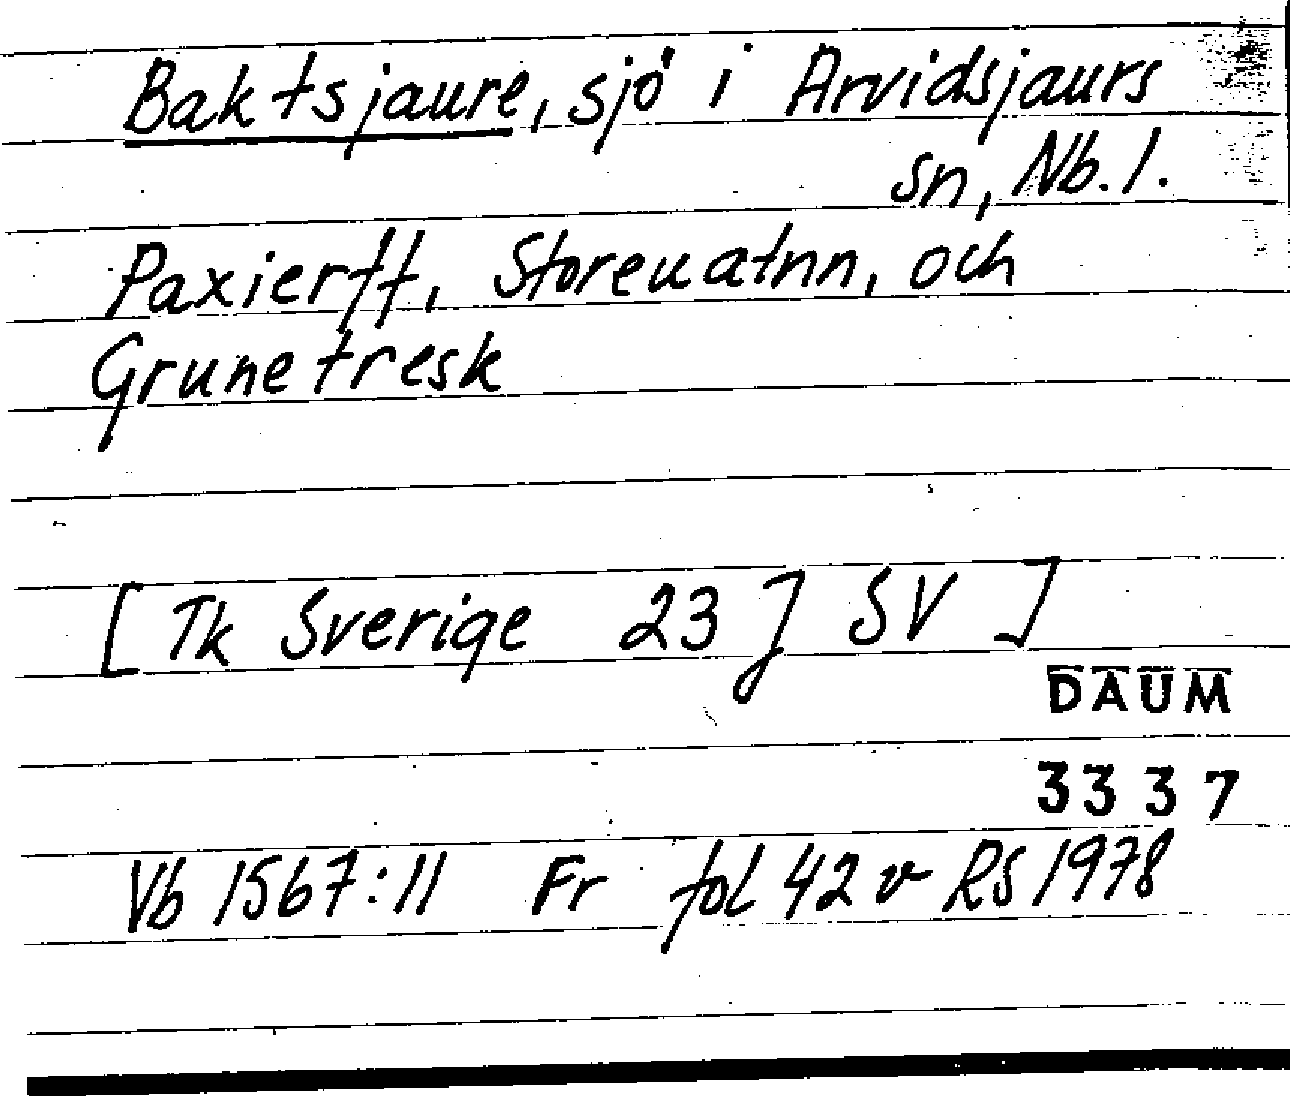 Baktsjaure, sjö i Arvidsjaurs
sn, Nb. l.
Paxierff, Storeuatnn, och
Grunetresk
[Tk Sverige 23 J SV]
DAUM
3337
Vb 1567:11 Fr fol 42 v RS 1978